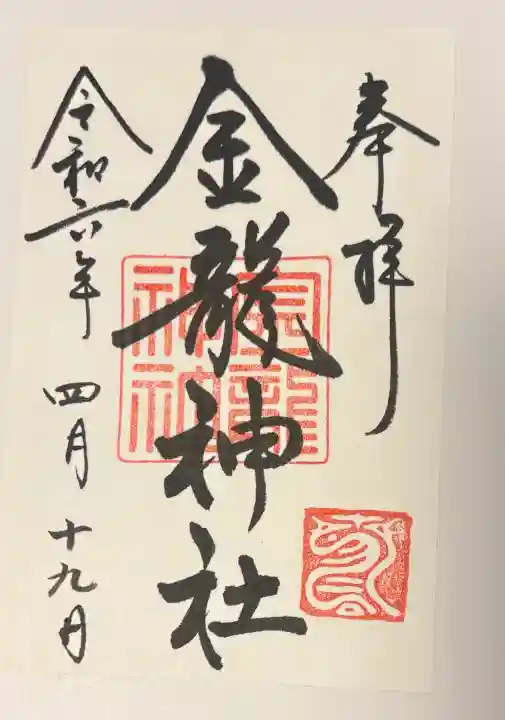 奉拝
金龍神社
金龍神社
令和六年 四月 十九日